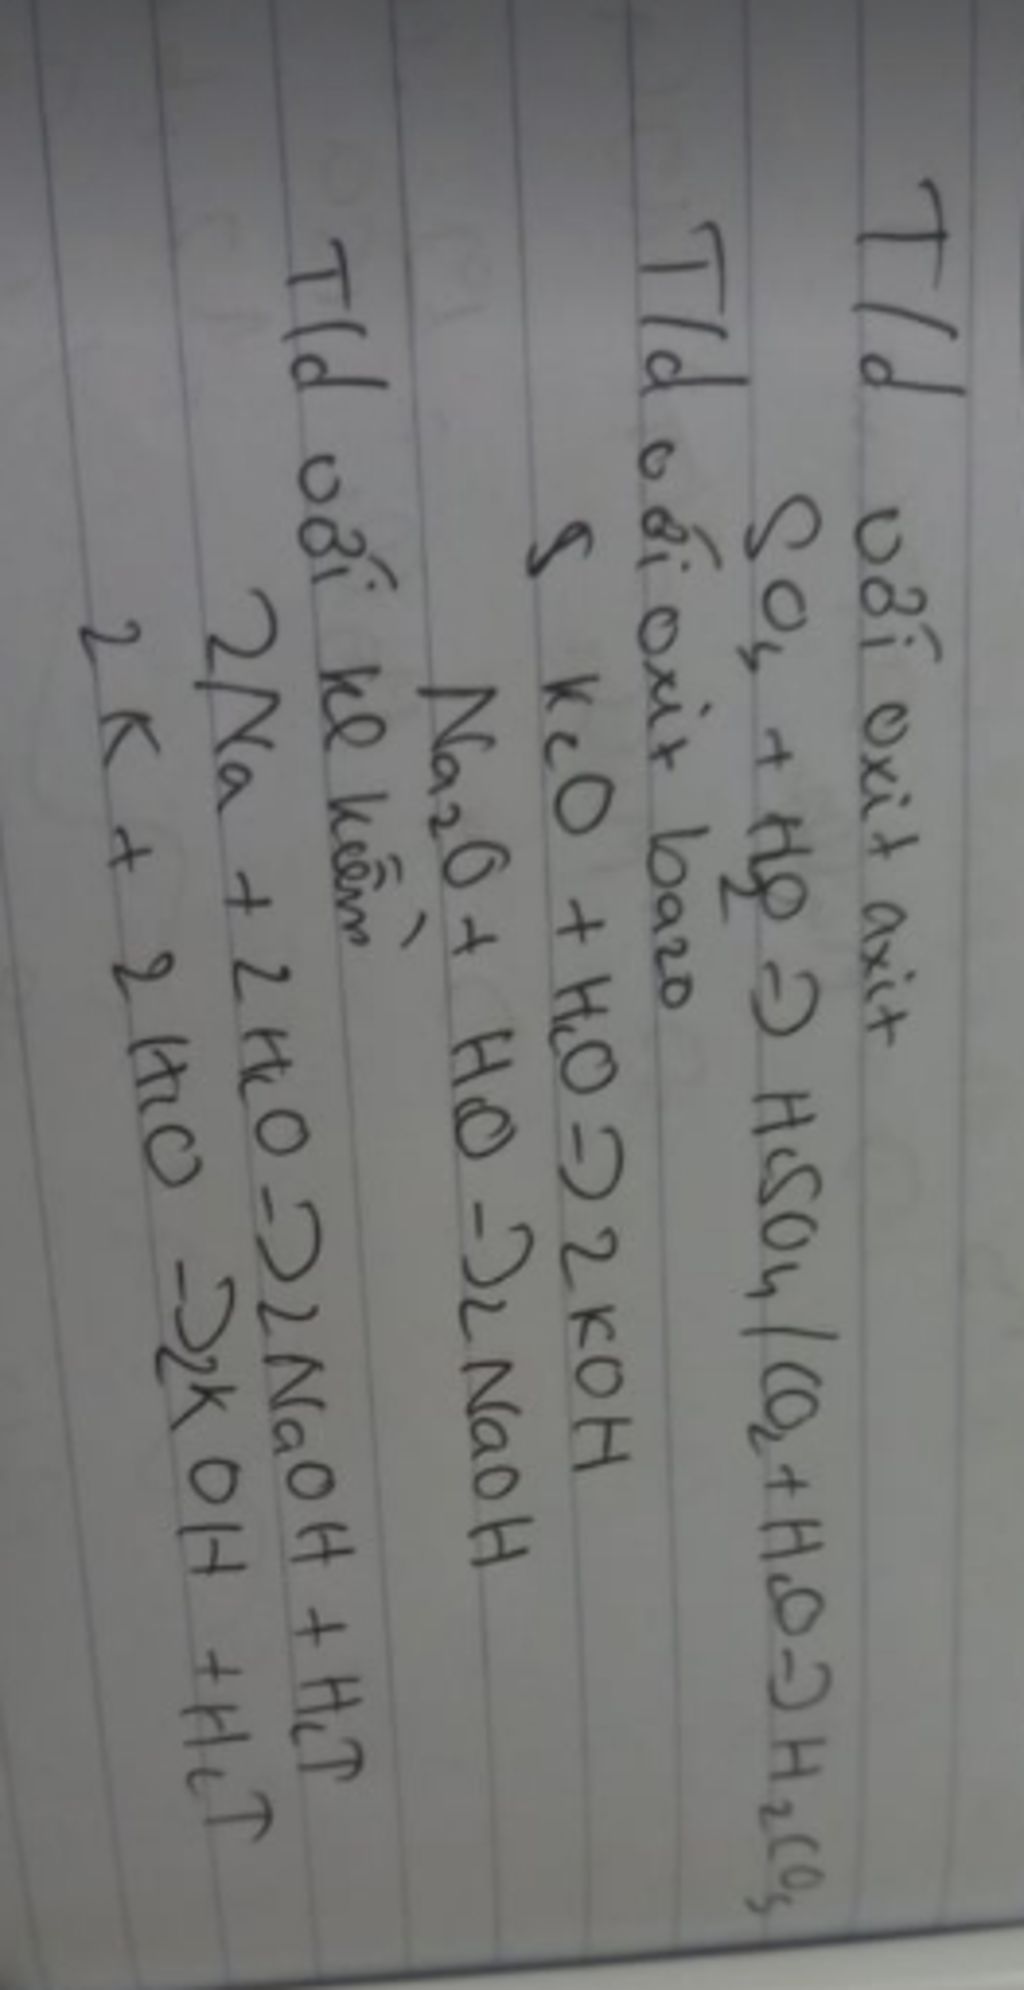 T/d với oxit axit
SO₃ + H₂O => H₂SO₄ / CO₂ + H₂O => H₂CO₃
T/d với oxit bazo
K₂O + H₂O => 2KOH
Na₂O + H₂O => 2NaOH
T/d với kl kiềm
2Na + 2H₂O => 2NaOH + H₂↑
2K + 2H₂O => 2KOH + H₂↑